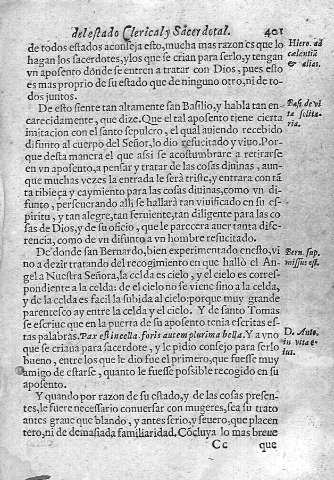 del estado Clerical, y Sacerdotal. 401
de todos estados aconseja esto, mucha mas razon es que lo
hagan los sacerdotes, y los que se crian para serlo, y tengan
vn aposento dónde se entren a tratar con Dios, pues esto
es mas proprio de su estado que de ninguno otro, ni de to-
dos juntos.
Hiero. ad
& alias.
De esto siente tan altamente san Basilio, y habla tan en-
carecidamente, que dize. Que el tal aposento tiene cierta
imitacion con el santo sepulcro, el qual auiendo recebido
difunto al cuerpo del Señor, lo dio resucitado y viuo. Por-
que desta manera el que assi se acostumbrare a retirarse
en vn aposento, a pensar y tratar de las cosas diuinas, aun-
que muchas vezes la entrada le será triste, y entrara con tã
ta tibieça y caymiento para las cosas diuinas, como vn di-
funto, perseuerando alli se hallará tan viuificado en su es-
piritu, y tan alegre, tan feruiente, tan diligente para las co-
sas de Dios, y de su oficio, que le parecera auer tanta dife-
rencia, como de vn difunto a vn hombre resucitado.
Bas. de vi
ta solita-
ria.
De donde san Bernardo, bien experimentado en esto, vi-
no a dezir tratando del recogimiento en que halló el An-
gel a Nuestra Señora, la celda es cielo, y el cielo es corres-
pondiente a la celda: de el cielo no se viene sino a la celda,
y de la celda es facil la subida al cielo: porque muy grande
parentesco ay entre la celda y el cielo. Y de santo Tomas
se escriue que en la puerta de su aposento tenia escritas es-
tas palabras. Pax est in cella. foris autem plurima bella. Y a vno
que se criaua para sacerdote, y le pidio consejo para serlo
bueno, entre los que le dio fue el primero, que fuesse muy
amigo de estarse, quanto le fuesse possible recogido en su
aposento.
Bern. sup.
missus est.
D. Anto.
in vita e-
ius.
Y quando por razon de su estado, y de las cosas presen-
tes, le fuere necessario conuersar con mugeres, sea su trato
antes graue que blando, y antes serio, y seuero, que placen
tero, ni de demasiada familiaridad. Cõcluya lo mas breue
Cc que